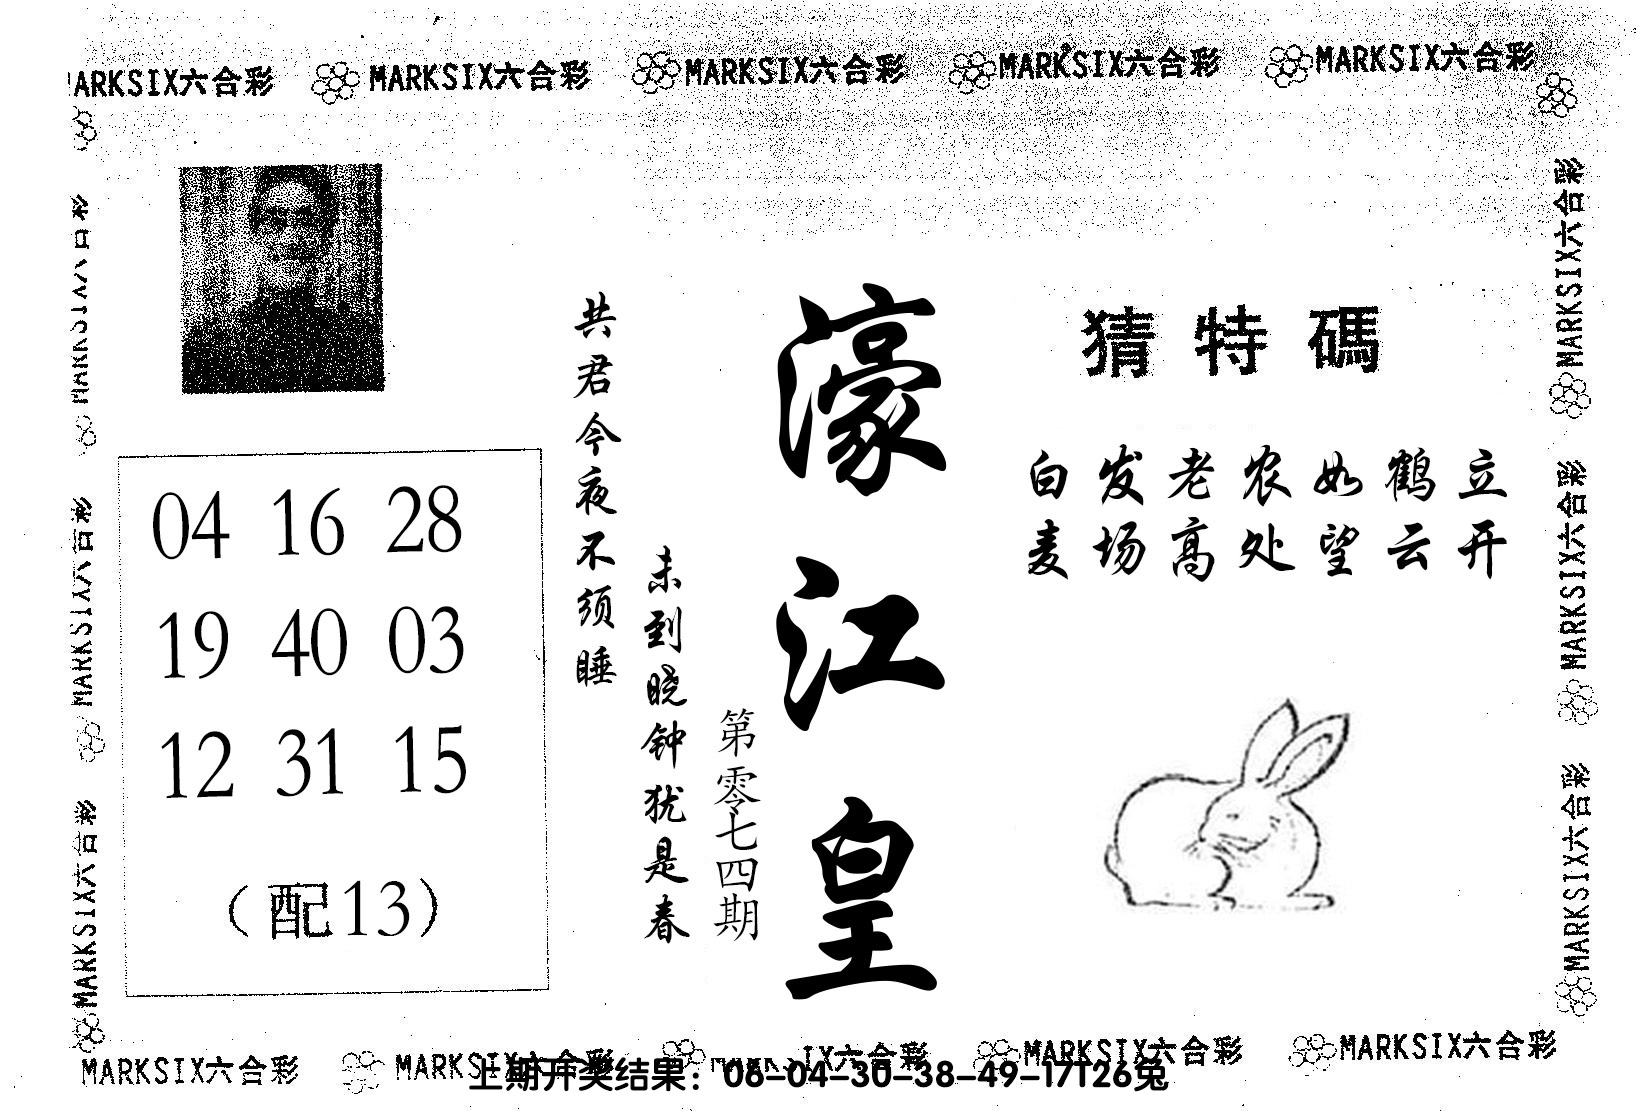 MARKSIX六合彩 MARKSIX六合彩 MARKSIX六合彩 MARKSIX六合彩
MARKSIX六合彩
MARKSIX六合彩
MARKSIX六合彩
MARKSIX六合彩
MARKSIX六合彩
猜特碼
白发老农如鹤立
麦场高处望云开
濠江皇
第零七四期
共君今夜不须睡
未到晓钟犹是春
04 16 28
19 40 03
12 31 15
（配13）
MARKSIX六合彩 MARKSIX六合彩 MARKSIX六合彩
上期开奖结果：06-04-30-38-49-17T26兔